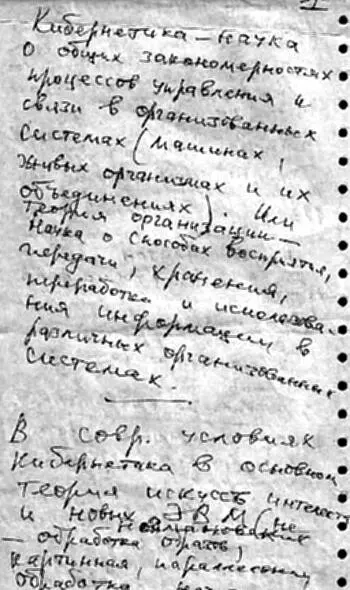 Кибернетика – наука
о общих закономерностях
процессов управления и
связи в организованных
системах (машинах,
живых организмах и их
объединениях). Или
Теория организации –
Наука о способах восприятия,
передачи, хранения,
переработки и использова-
ния информации в
различных организованных
системах.
В совр. условиях
кибернетика в основном
теория искусств интеллект
и новых ЭВМ (не
неймановских
– обработка образов,
картинная, параллельная
обработка